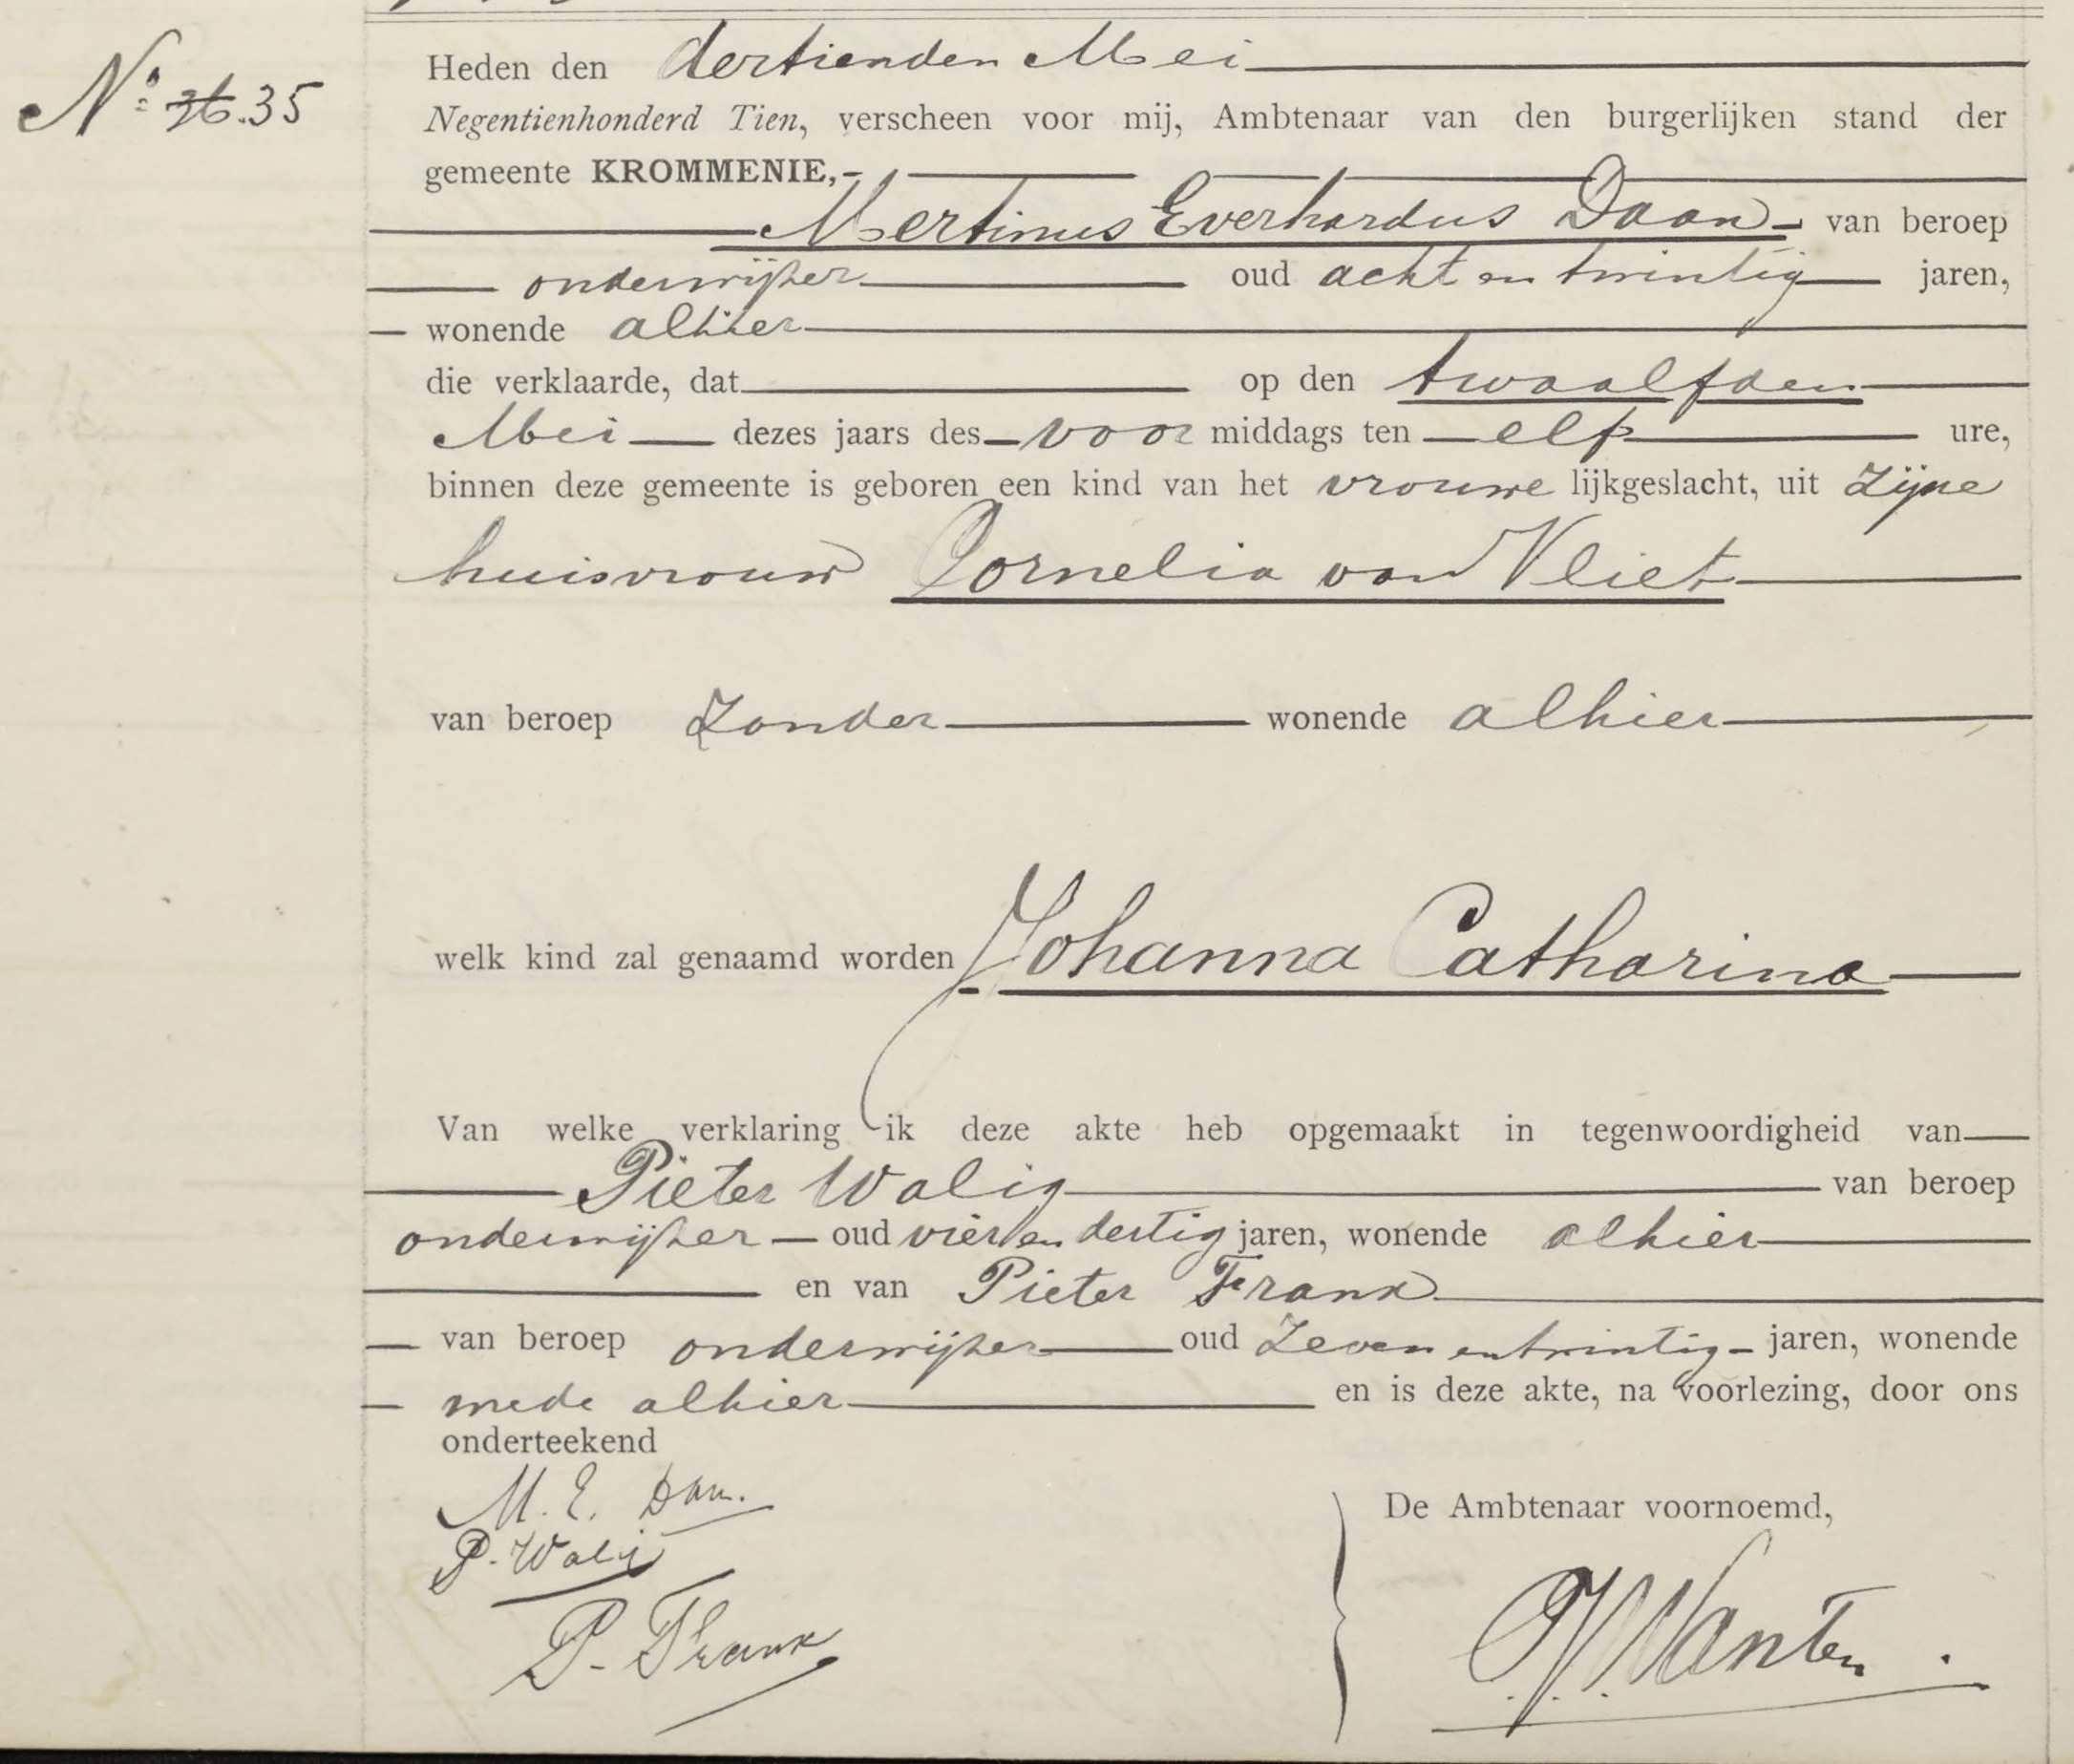 Nº 36. 35
Heden den dertienden Mei
Negentienhonderd Tien, verscheen voor mij, Ambtenaar van den burgerlijken stand der
gemeente KROMMENIE,
Mertinus Everhardus Daan van beroep
onderwijzer oud acht en twintig jaren,
wonende alhier
die verklaarde, dat op den twaalfden
Mei dezes jaars des voor middags ten elf ure,
binnen deze gemeente is geboren een kind van het vrouwe lijkgeslacht, uit zijne
huisvrouw Cornelia van Vliet
van beroep zonder wonende alhier
welk kind zal genaamd worden Johanna Catharina
Van welke verklaring ik deze akte heb opgemaakt in tegenwoordigheid van
Pieter Walig van beroep
onderwijzer oud vier en dertig jaren, wonende alhier
en van Pieter Frank
van beroep onderwijzer oud zeven en twintig jaren, wonende
mede alhier en is deze akte, na voorlezing, door ons
onderteekend
M. E. Daan.
De Ambtenaar voornoemd,
P. Walig
P. Frank